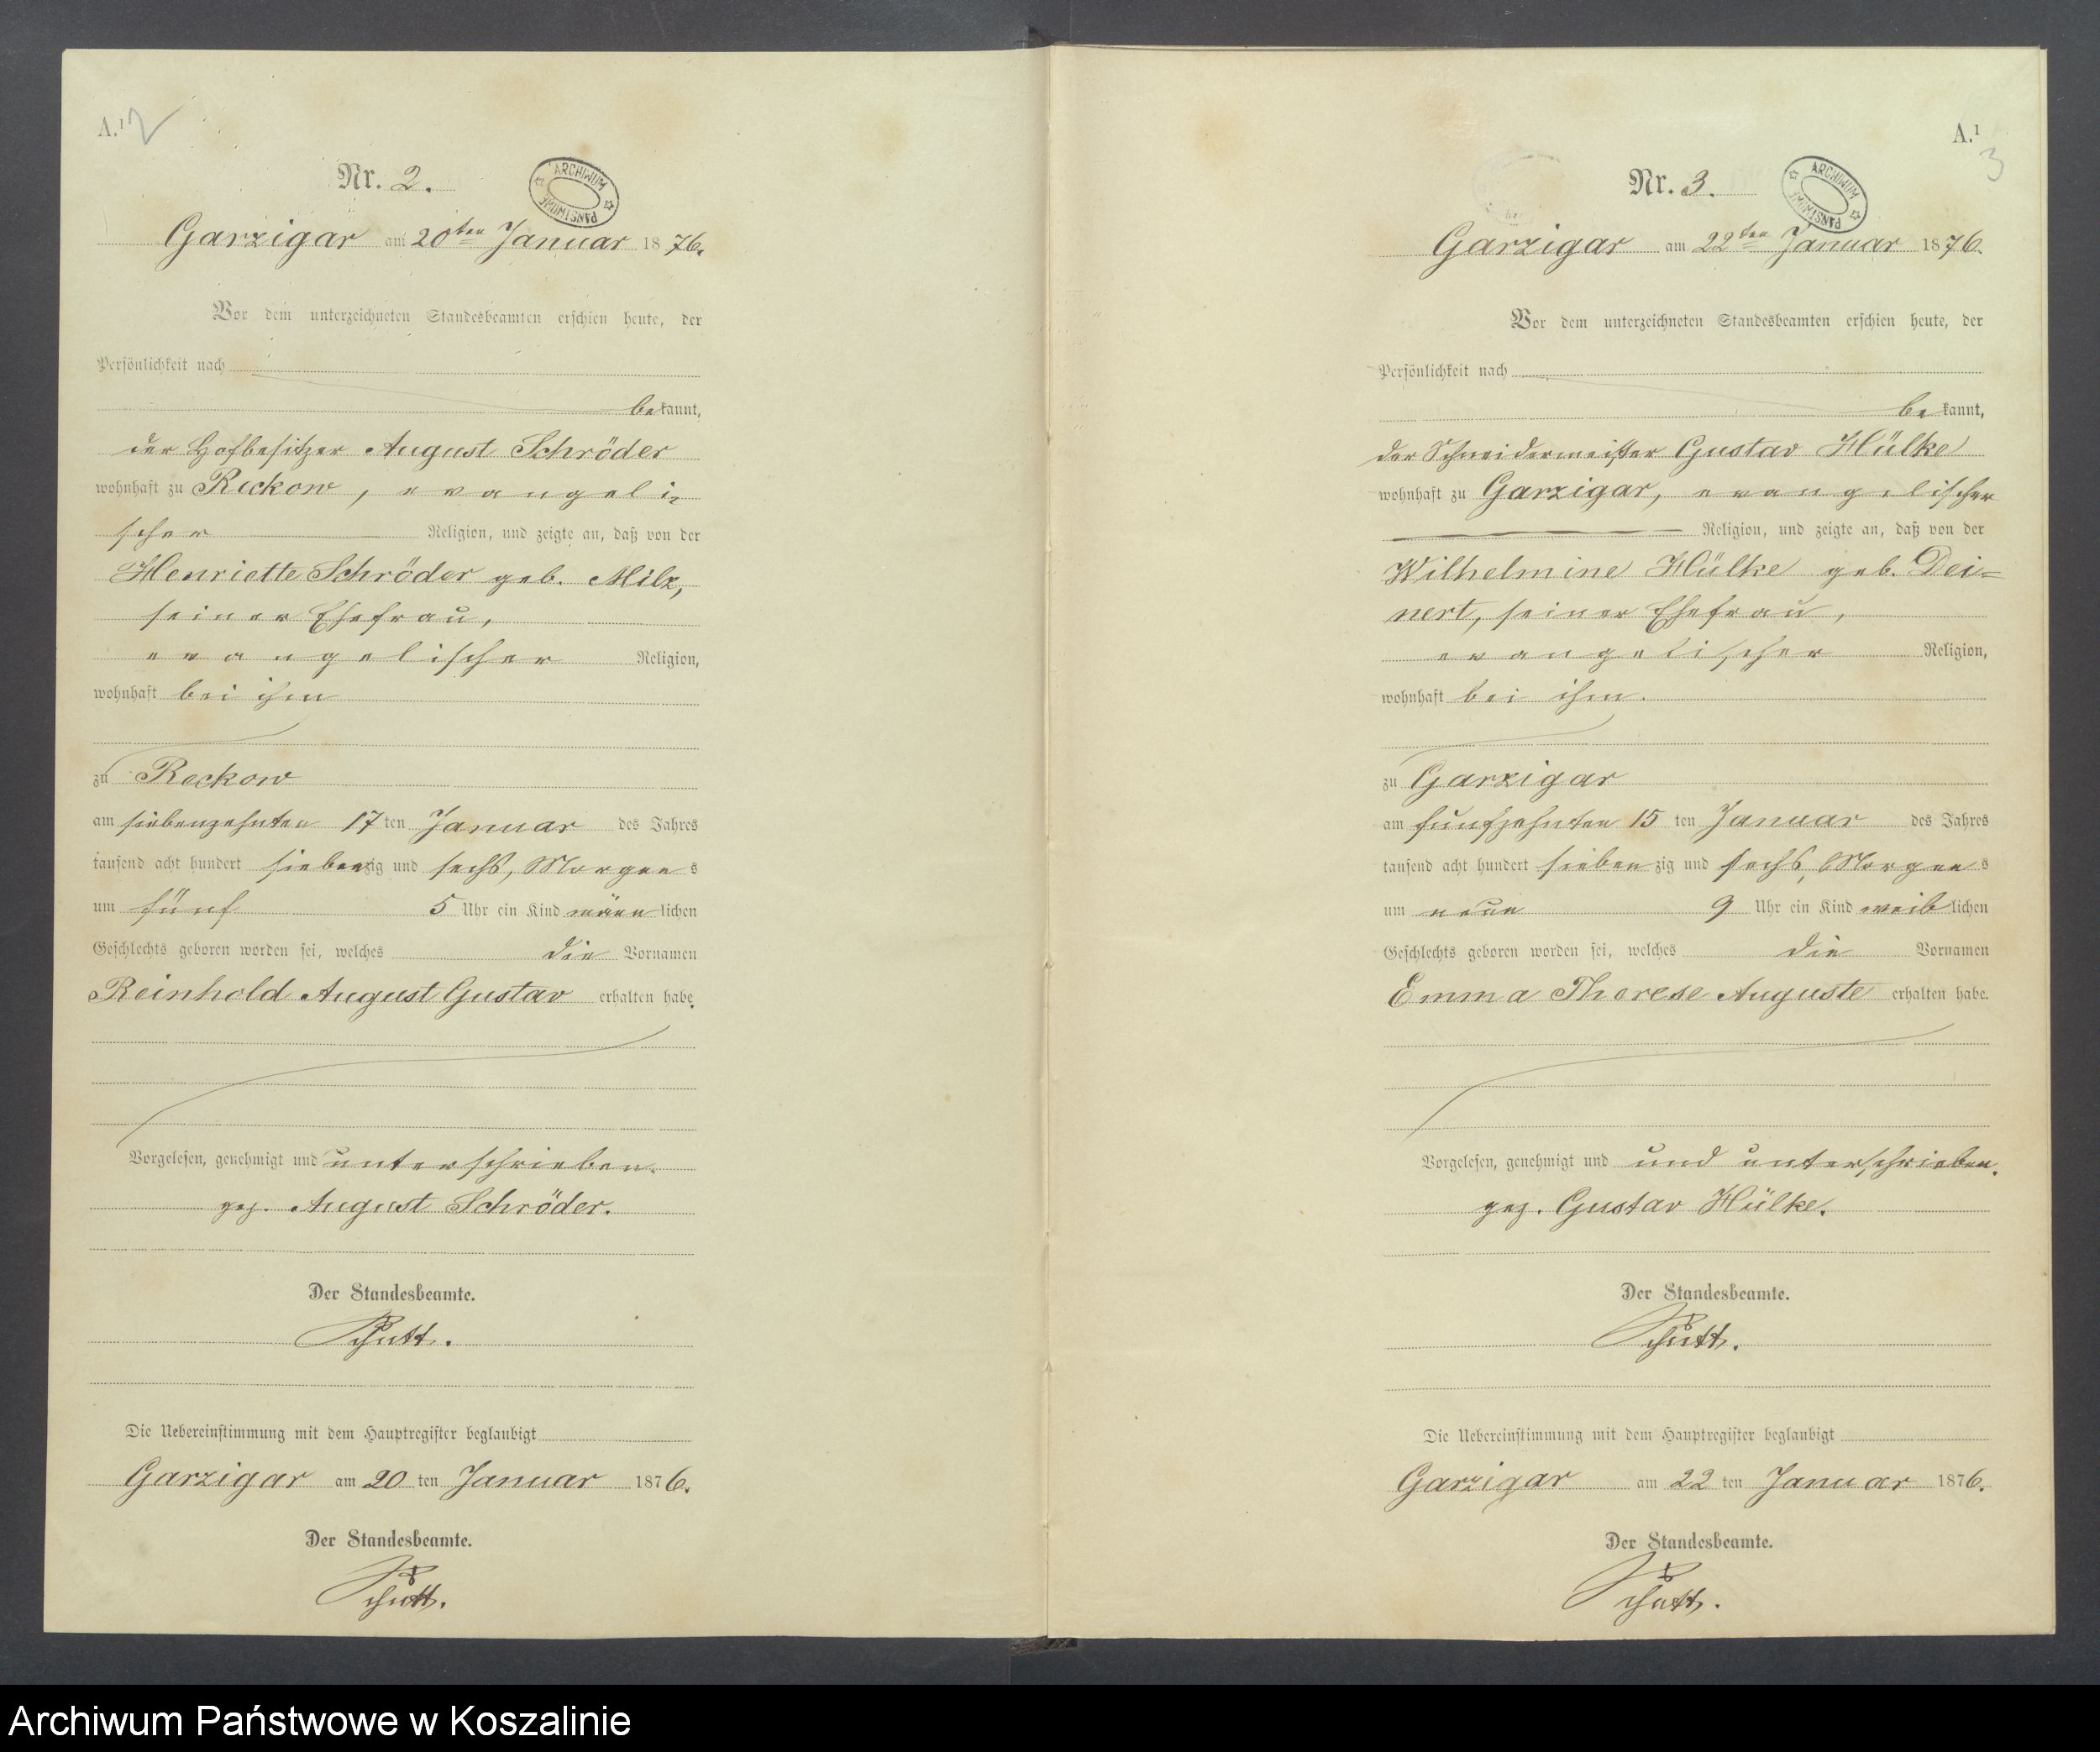 A.¹ 2
Nr. 2.
ARCHIWUM PAŃSTWOWE
Garzigar am 20ten Januar 1876.
Vor dem unterzeichneten Standesbeamten erschien heute, der
Persönlichkeit nach
bekannt,
der Hofbesitzer August Schröder
wohnhaft zu Reckow, evangeli-
scher Religion, und zeigte an, daß von der
Henriette Schröder geb. Milz,
seiner Ehefrau,
evangelischer Religion,
wohnhaft bei ihm
zu Reckow
am siebenzehnten 17ten Januar des Jahres
tausend acht hundert siebenzig und sechs, Morgens
um fünf 5 Uhr ein Kind männlichen
Geschlechts geboren worden sei, welches die Vornamen
Reinhold August Gustav erhalten habe.
Vorgelesen, genehmigt und unterschrieben.
gez. August Schröder.
Der Standesbeamte.
Schutt.
Die Uebereinstimmung mit dem Hauptregister beglaubigt
Garzigar am 20ten Januar 1876.
Der Standesbeamte.
Schutt.
A.¹
3
Nr. 3.
ARCHIWUM PAŃSTWOWE
Garzigar am 22ten Januar 1876.
Vor dem unterzeichneten Standesbeamten erschien heute, der
Persönlichkeit nach
bekannt,
der Schneidermeister Gustav Hülke
wohnhaft zu Garzigar, evangelischer
Religion, und zeigte an, daß von der
Wilhelmine Hülke geb. Dei=
nert, seiner Ehefrau,
evangelischer Religion,
wohnhaft bei ihm.
zu Garzigar
am funfzehnten 15ten Januar des Jahres
tausend acht hundert siebenzig und sechs, Morgens
um neun 9 Uhr ein Kind weiblichen
Geschlechts geboren worden sei, welches die Vornamen
Emma Therese Auguste erhalten habe.
Vorgelesen, genehmigt und und unterschrieben.
gez. Gustav Hülke.
Der Standesbeamte.
Schutt.
Die Uebereinstimmung mit dem Hauptregister beglaubigt
Garzigar am 22ten Januar 1876.
Der Standesbeamte.
Schutt.
Archiwum Państwowe w Koszalinie